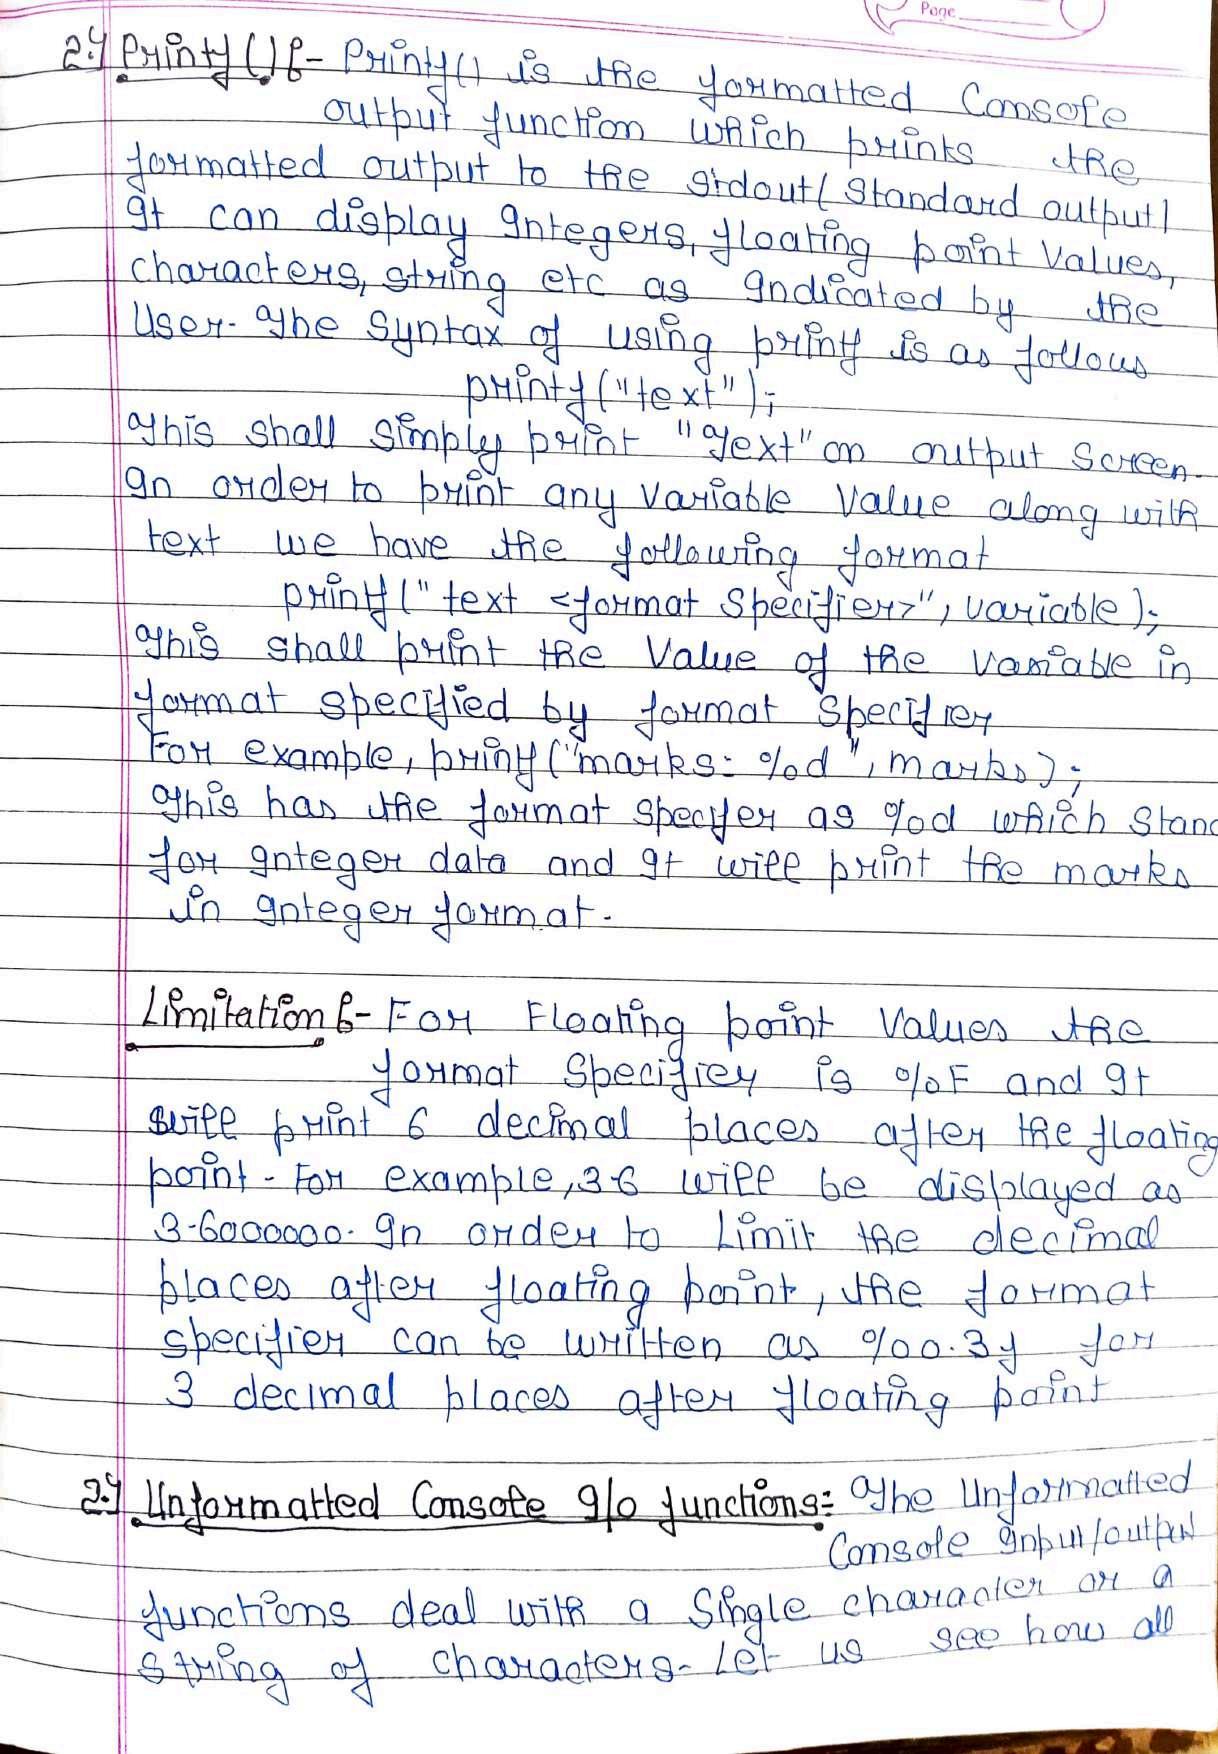 Page
2.4 Printf() :- Printf() is the formatted Console
output function which prints the
formatted output to the stdout (Standard output)
It can display Integers, floating point Values,
characters, string etc as Indicated by the
User. The Syntax of using printf is as follows
printf("text");
This shall simply print "Text" on output Screen.
In order to print any variable Value along with
text we have the following format
printf("text <format Specifier>", variable);
This shall print the Value of the variable in
format specified by format Specifier
For example, printf("marks: %d", marks);
This has the format specifer as %d which Stand
for Integer data and It will print the marks
in Integer format.
Limitation :- For Floating point Values the
format Specifier is %F and It
will print 6 decimal places after the floating
point. For example, 3.6 will be displayed as
3.6000000. In order to Limit the decimal
places after floating point, the format
specifier can be written as %0.3f for
3 decimal places after floating point
2.4 Unformatted Console I/O functions:- The Unformatted
Console Input/output
functions deal with a Single character or a
string of characters. Let us see how all